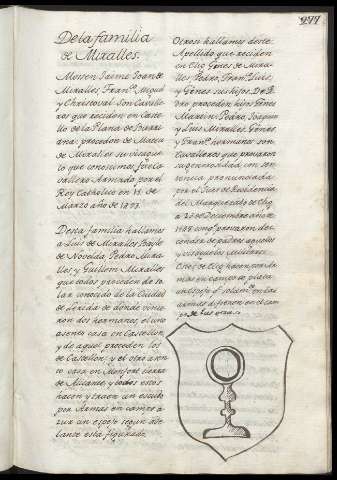 277
De la familia
de Miralles.
Mossen Jaime Joan de
Miralles Franco. Miguel
y Christoval son Cavalle
ros que residen en Caste
llo de la Plana de Burria
na: proceden de Mateu
de Miralles su visaguelo
que conosimos fue Ca
vallero Armado por el
Rey Catholico en 15 de
Marzo año de
Desta familia hallamos
a Luis de Miralles Bayle
de Novelda Pedro Mira
lles y Guillem Miralles
que todos proceden de so
lar conocido de la Ciudad
de Lerida de donde vinie
ron dos hermanos, el uno
asento casa en Castellon,
y de aquel proceden los
de Castellon: y el otro asen
to casa en Monfort tierra
de Alicante y todos estos
hacen y traen un escudo
por Armas en campo a
zur un espejo segun ade
lante está figurado.
Otrosi hallamos deste
Apellido que residen
en Elig Gines de Mira
lles, Pedro, Franco. Luis,
y Gines sus hijos. De
proceden hijos Gines
Martin, Pedro, Joaquin
y Luis Miralles. Gines,
y Franco. hermanos son
Cavalleros que provaron
su generosidad, con sen
tencia pronunciada
por el Juez de Residencia
del Marquesado de Elig
a 20 de Deciembre año de
provaron des
cender de padres aguelos
y visaguelos Militares.
Estos de Elig hacen por Ar
mas en campo de plata
un espejo solamte. en las
armas diferen en el cam
po de los otros.